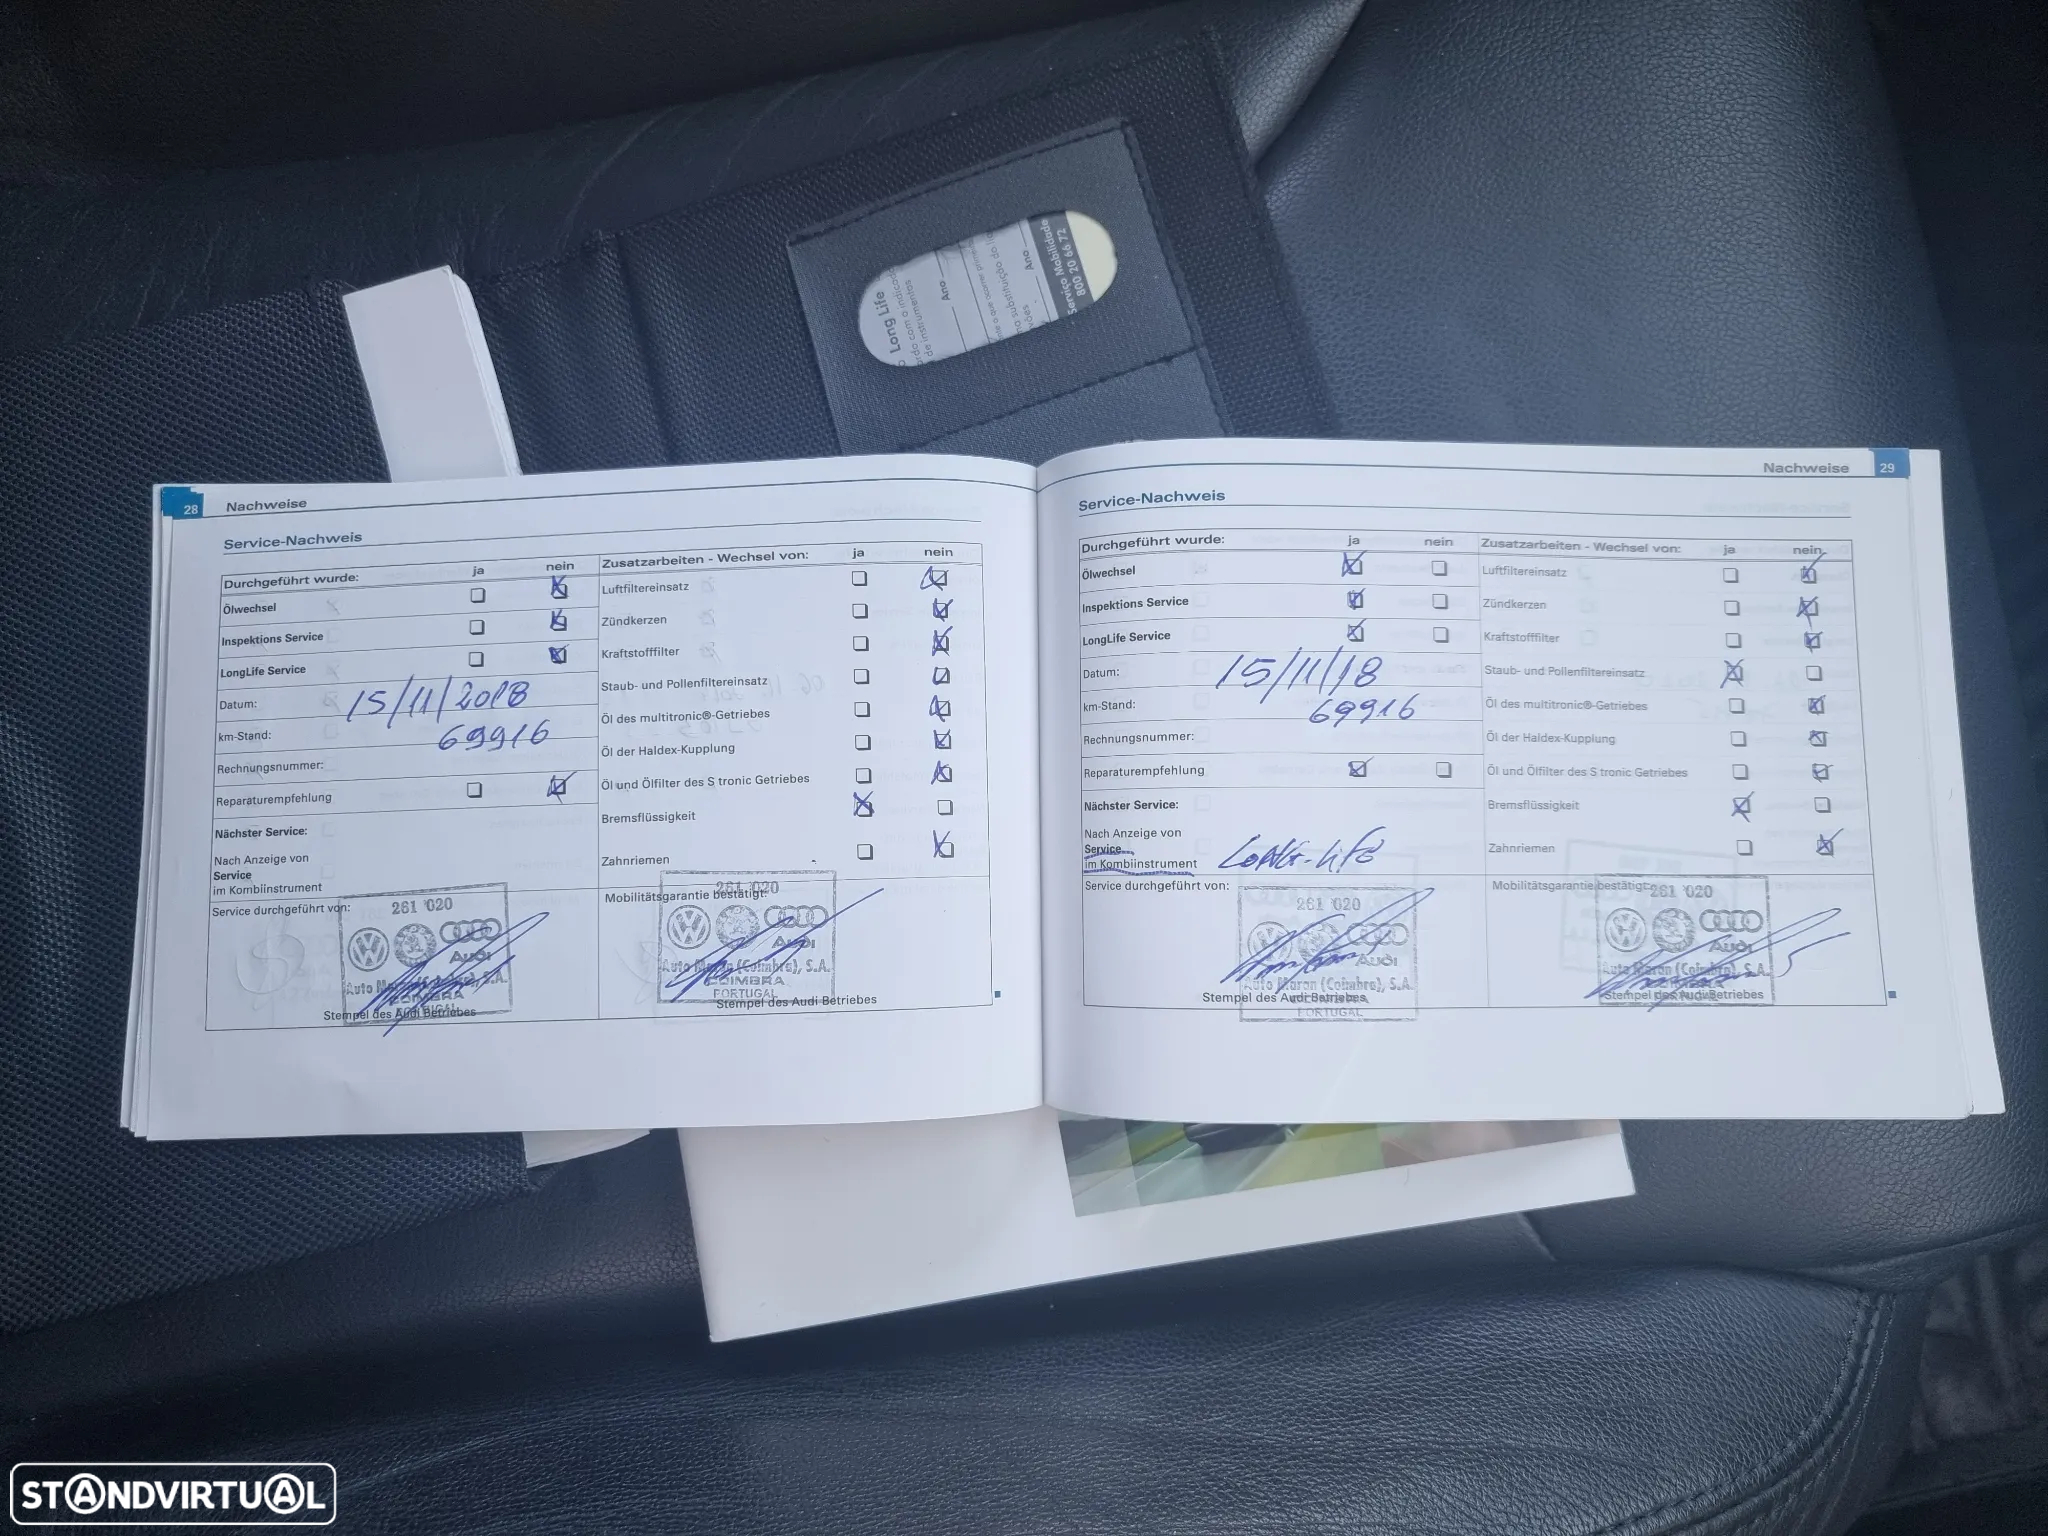 Long Life
Ano
Ano
Serviço Mobilidade
800 20 66 72
28 Nachweise
Service-Nachweis
Durchgeführt wurde: ja nein
Ölwechsel
Inspektions Service
LongLife Service
Datum: 15/11/2018
km-Stand: 69916
Rechnungsnummer:
Reparaturempfehlung
Nächster Service:
Nach Anzeige von
Service
im Kombiinstrument
Service durchgeführt von:
261 020
Audi
Auto Maran (Coimbra), S.A.
COIMBRA
PORTUGAL
Stempel des Audi Betriebes
Zusatzarbeiten - Wechsel von: ja nein
Luftfiltereinsatz
Zündkerzen
Kraftstofffilter
Staub- und Pollenfiltereinsatz
Öl des multitronic®-Getriebes
Öl der Haldex-Kupplung
Öl und Ölfilter des S tronic Getriebes
Bremsflüssigkeit
Zahnriemen
Mobilitätsgarantie bestätigt:
261 020
Audi
Auto Maran (Coimbra), S.A.
COIMBRA
PORTUGAL
Stempel des Audi Betriebes
Nachweise 29
Service-Nachweis
Durchgeführt wurde: ja nein
Ölwechsel
Inspektions Service
LongLife Service
Datum: 15/11/18
km-Stand: 69916
Rechnungsnummer:
Reparaturempfehlung
Nächster Service:
Nach Anzeige von
Service
im Kombiinstrument Long-Life
Service durchgeführt von:
261 020
Audi
Auto Maran (Coimbra), S.A.
Stempel des Audi Betriebes
PORTUGAL
Zusatzarbeiten - Wechsel von: ja nein
Luftfiltereinsatz
Zündkerzen
Kraftstofffilter
Staub- und Pollenfiltereinsatz
Öl des multitronic®-Getriebes
Öl der Haldex-Kupplung
Öl und Ölfilter des S tronic Getriebes
Bremsflüssigkeit
Zahnriemen
Mobilitätsgarantie bestätigt:
261 020
Audi
Auto Maran (Coimbra), S.A.
Stempel des Audi Betriebes
STANDVIRTUAL